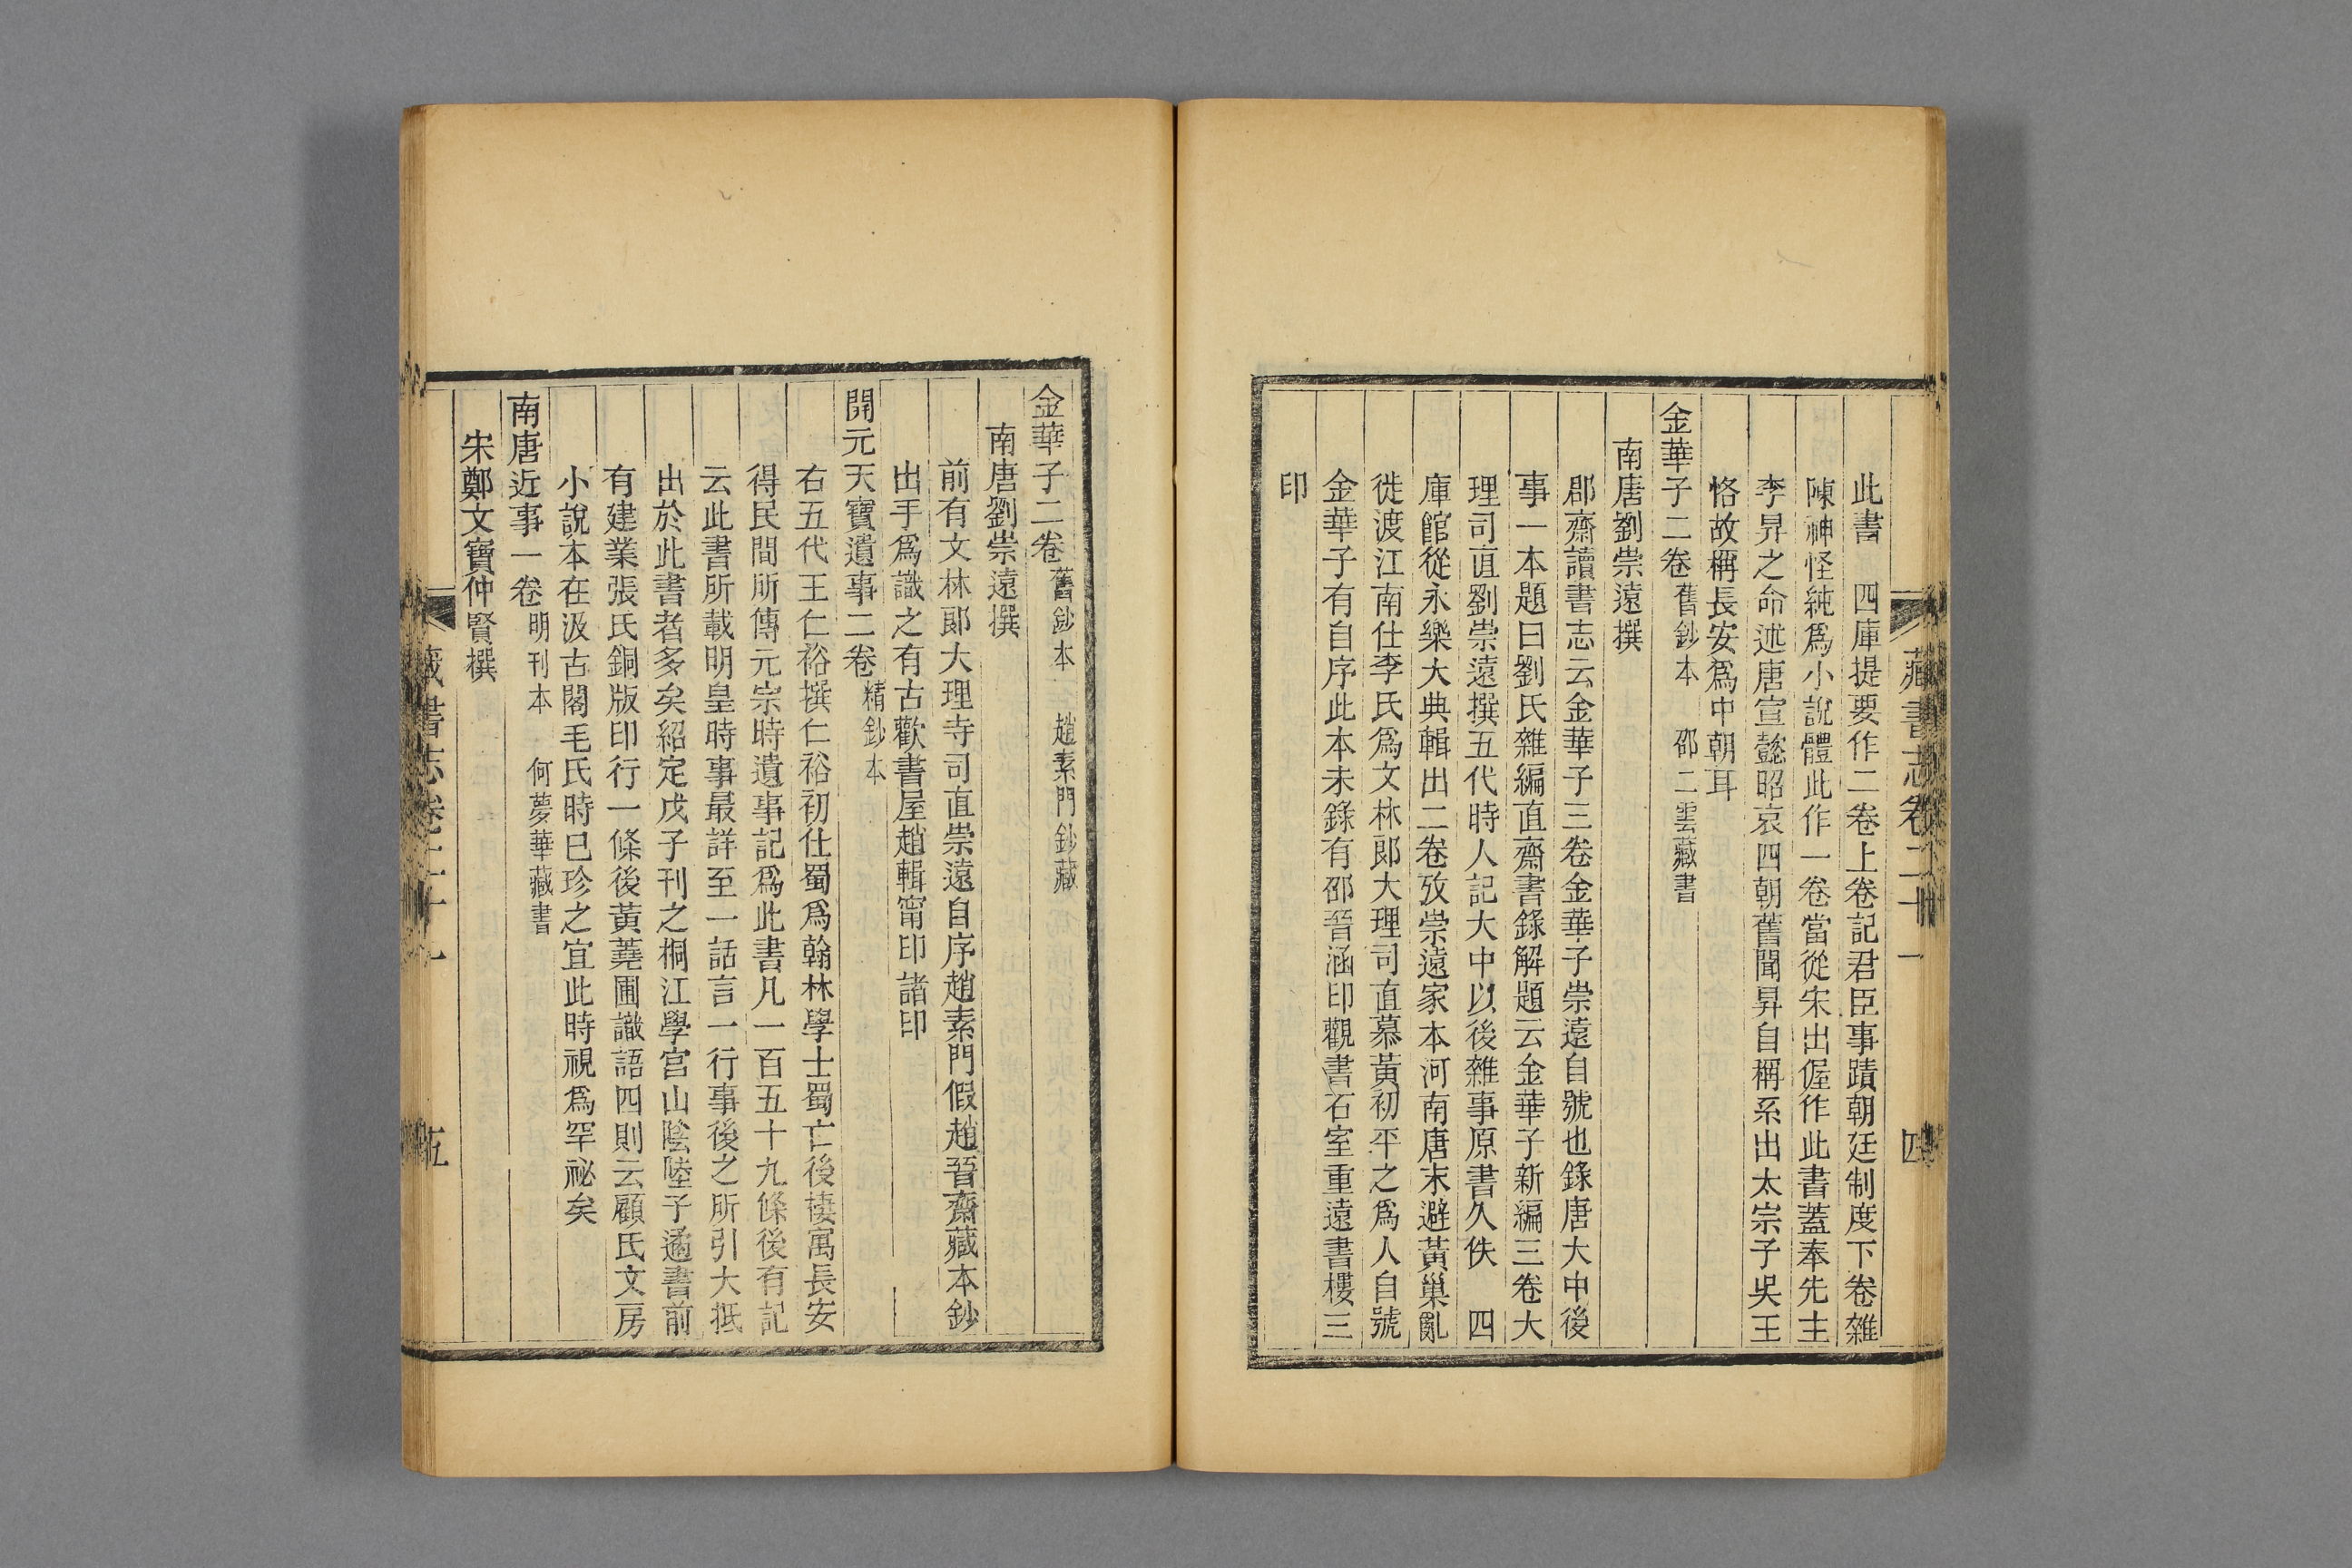 藏書志卷二十一
四
此書　四庫提要作二卷上卷記君臣事蹟朝廷制度下卷雜
陳神怪純爲小說體此作一卷當從宋出偓作此書蓋奉先主
李昇之命述唐宣懿昭哀四朝舊聞昇自稱系出太宗子吳王
恪故稱長安爲中朝耳
金華子二卷舊鈔本　邵二雲藏書
南唐劉崇遠撰
郡齋讀書志云金華子三卷金華子崇遠自號也錄唐大中後
事一本題曰劉氏雜編直齋書錄解題云金華子新編三卷大
理司直劉崇遠撰五代時人記大中以後雜事原書久佚　四
庫館從永樂大典輯出二卷攷崇遠家本河南唐末避黃巢亂
徙渡江南仕李氏爲文林郎大理司直慕黃初平之爲人自號
金華子有自序此本未錄有邵晉涵印觀書石室重遠書樓三
印
金華子二卷舊鈔本　趙素門鈔藏
南唐劉崇遠撰
前有文林郎大理寺司直崇遠自序趙素門假趙晉齋藏本鈔
出手爲識之有古歡書屋趙輯甯印諸印
開元天寶遺事二卷精鈔本
右五代王仁裕撰仁裕初仕蜀爲翰林學士蜀亡後棲寓長安
得民間所傳元宗時遺事記爲此書凡一百五十九條後有記
云此書所載明皇時事最詳至一話言一行事後之所引大抵
出於此書者多矣紹定戊子刊之桐江學宮山陰陸子遹書前
有建業張氏銅版印行一條後黃蕘圃識語四則云顧氏文房
小說本在汲古閣毛氏時已珍之宜此時視爲罕祕矣
南唐近事一卷明刊本　何夢華藏書
宋鄭文寶仲賢撰
藏書志卷二十一
五